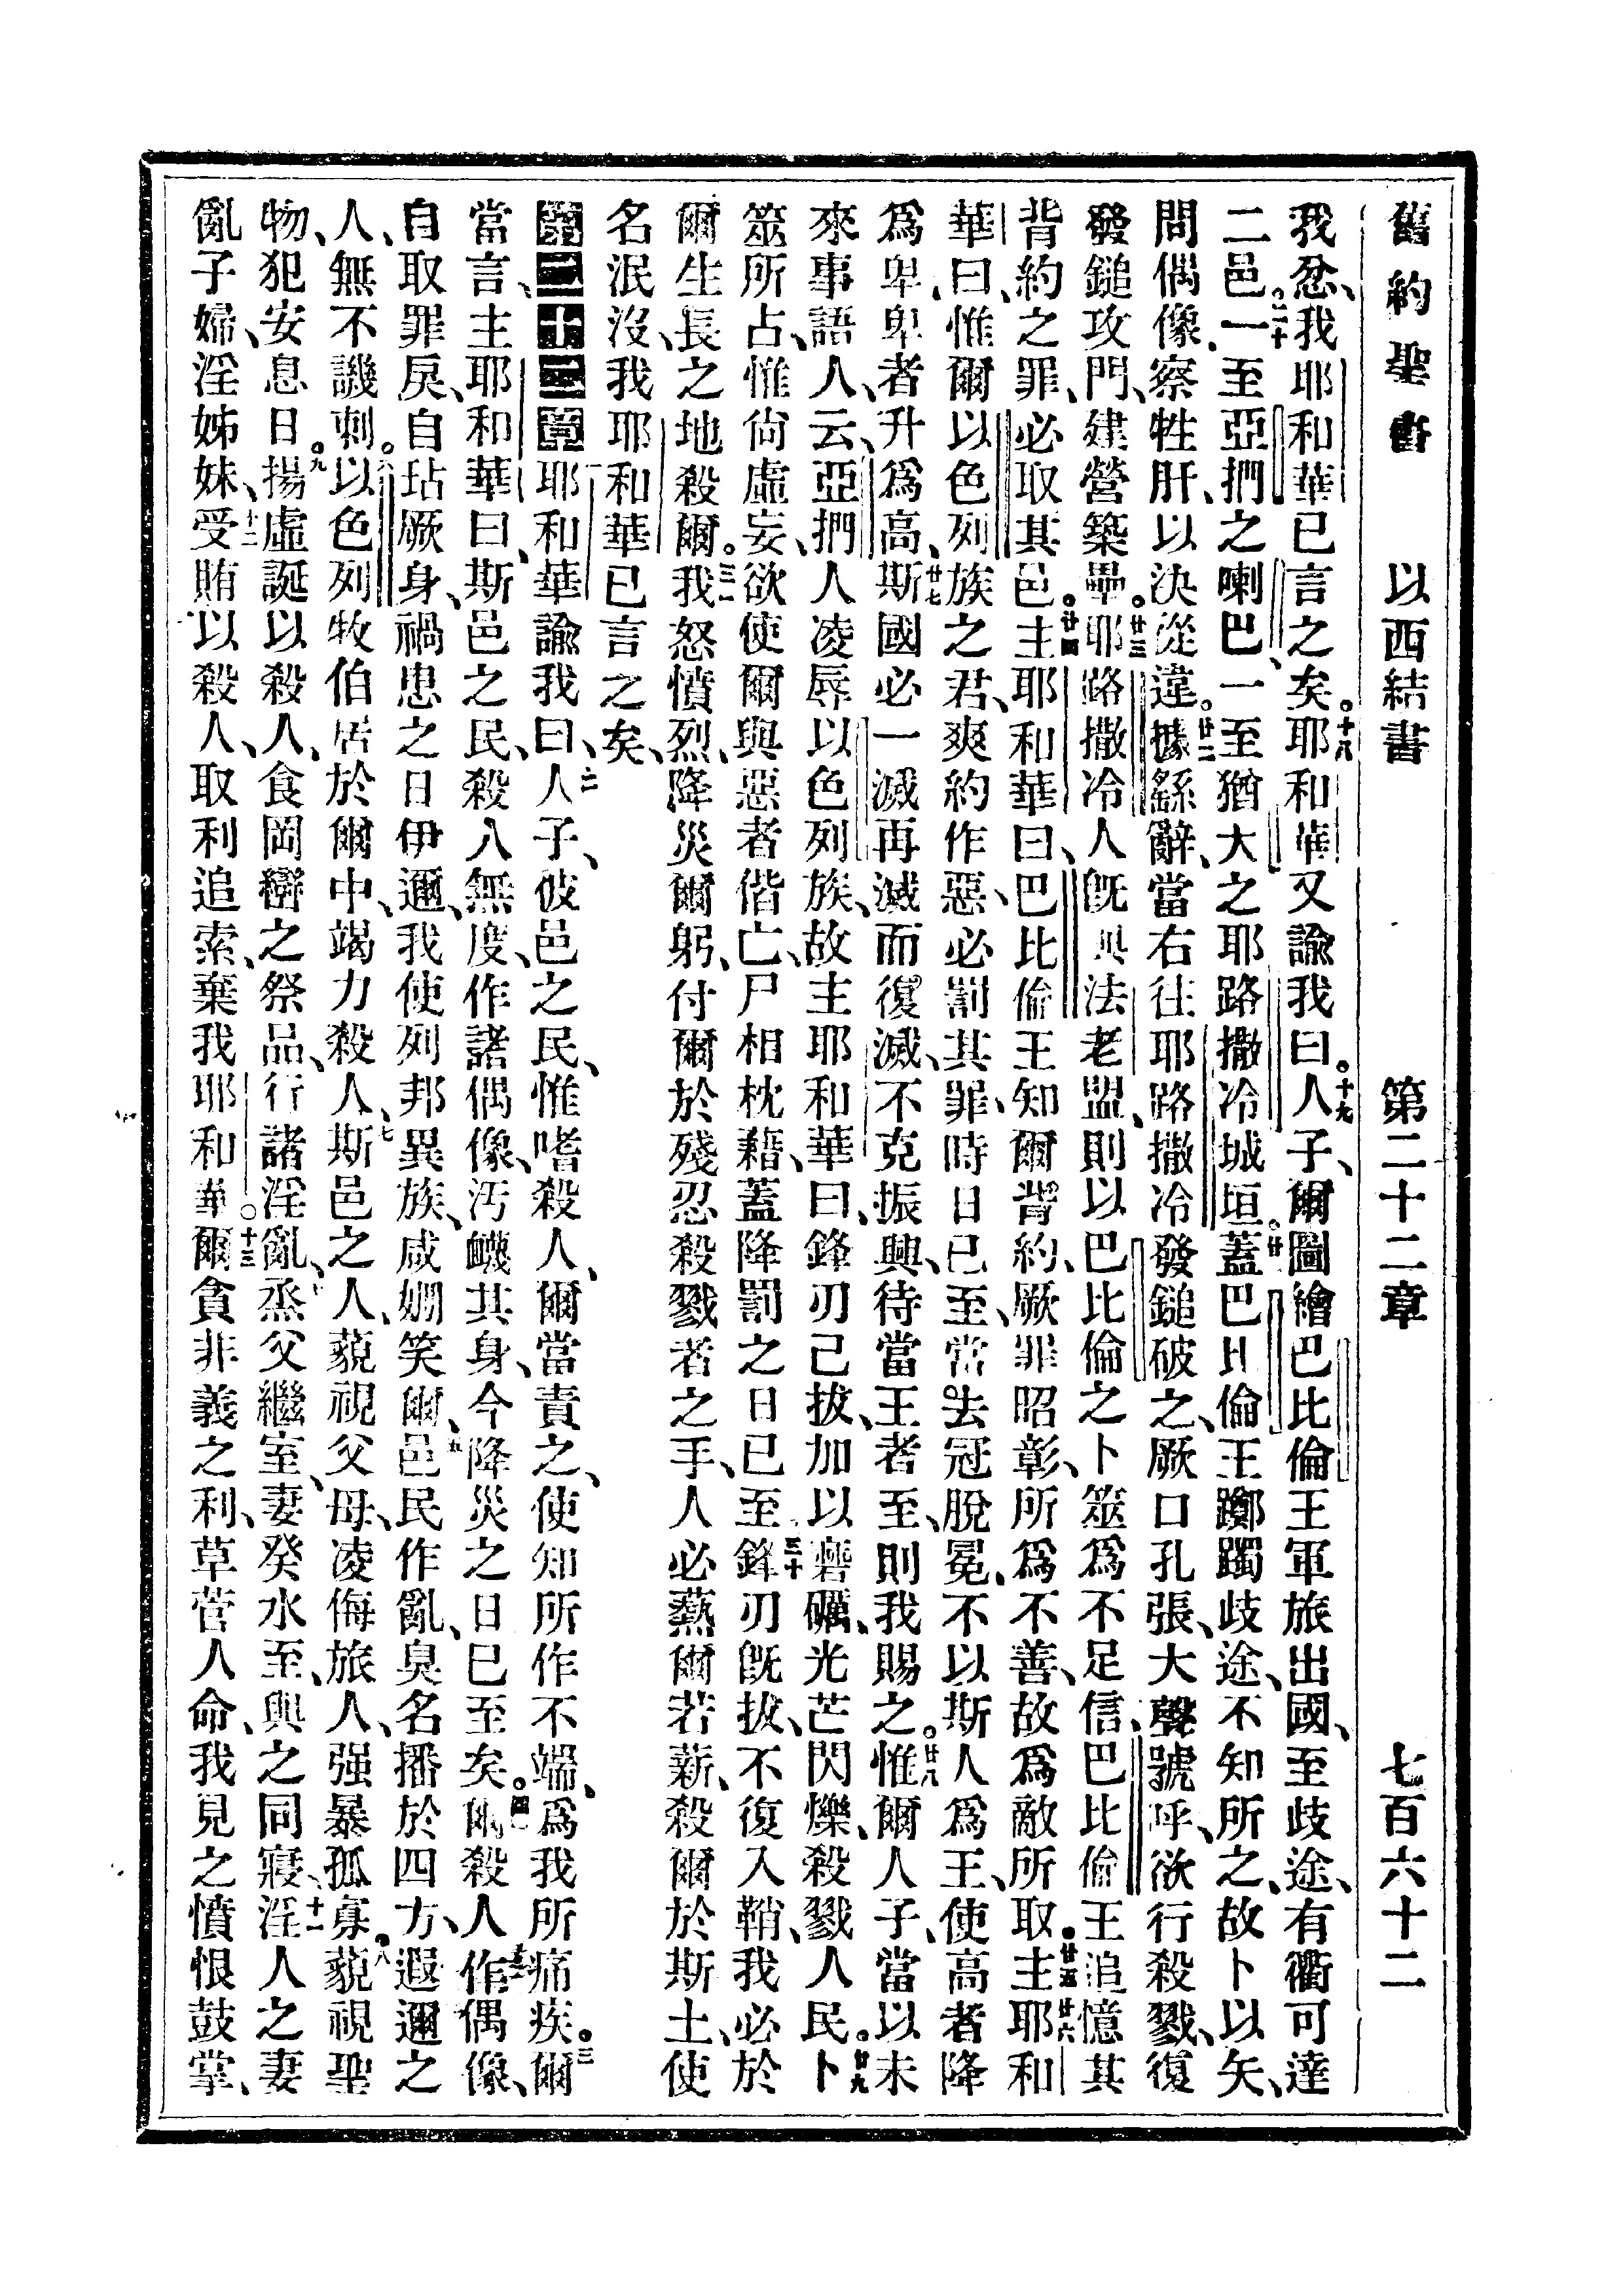 舊約聖書 以西結書 第二十二章 七百六十二
我忿、我耶和華已言之矣。十八耶和華又諭我曰。十九人子、爾圖繪巴比倫王軍旅出國、至歧途、有衢可達
二邑。二十一至亞捫之喇巴、一至猶大之耶路撒冷城垣。廿一蓋巴比倫王躑躅歧途、不知所之、故卜以矢、
問偶像、察牲肝、以決從違。廿二據繇辭、當右往耶路撒冷、發鎚破之、厥口孔張、大聲號呼、欲行殺戮、復
發鎚攻門、建營築壘。廿三耶路撒冷人旣與法老盟、則以巴比倫之卜筮爲不足信、巴比倫王追憶其
背約之罪、必取其邑。廿四主耶和華曰、巴比倫王知爾背約、厥罪昭彰、所爲不善、故爲敵所取。廿五廿六主耶和
華曰、惟爾以色列族之君、爽約作惡、必罰其罪、時日已至、當去冠脫冕、不以斯人爲王、使高者降
爲卑、卑者升爲高、廿七斯國必一滅再滅而復滅、不克振興、待當王者至、則我賜之。廿八惟爾人子、當以未
來事語人、云、亞捫人凌辱以色列族、故主耶和華曰、鋒刃已拔、加以礱礪、光芒閃爍、殺戮人民。廿九卜
筮所占、惟尙虛妄、欲使爾與惡者偕亡、尸相枕藉、蓋降罰之日已至、三十鋒刃旣拔、不復入鞘、我必於
爾生長之地殺爾。三一我怒憤烈、降災爾躬、付爾於殘忍殺戮者之手、人必爇爾若薪、殺爾於斯土、使
名泯沒、我耶和華已言之矣、
第二十二章耶和華諭我曰、二人子、彼邑之民、惟嗜殺人、爾當責之、使知所作不端、爲我所痛疾。三爾
當言、主耶和華曰、斯邑之民、殺人無度、作諸偶像、汚衊其身、今降災之日已至矣。四爾殺人作偶像、
自取罪戾、自玷厥身、禍患之日伊邇、我使列邦異族、咸姍笑爾、五邑民作亂、臭名播於四方、遐邇之
人、無不譏刺。六以色列牧伯居於爾中、竭力殺人、七斯邑之人、藐視父母、凌侮旅人、强暴孤寡。八藐視聖
物、犯安息日。九揚虛誕以殺人、食岡巒之祭品、行諸淫亂、十烝父繼室、妻癸水至、與之同寢、十一淫人之妻
亂子婦、淫姊妹、十二受賄以殺人、取利追索、棄我耶和華。十三爾貪非義之利、草菅人命、我見之憤恨鼓掌、